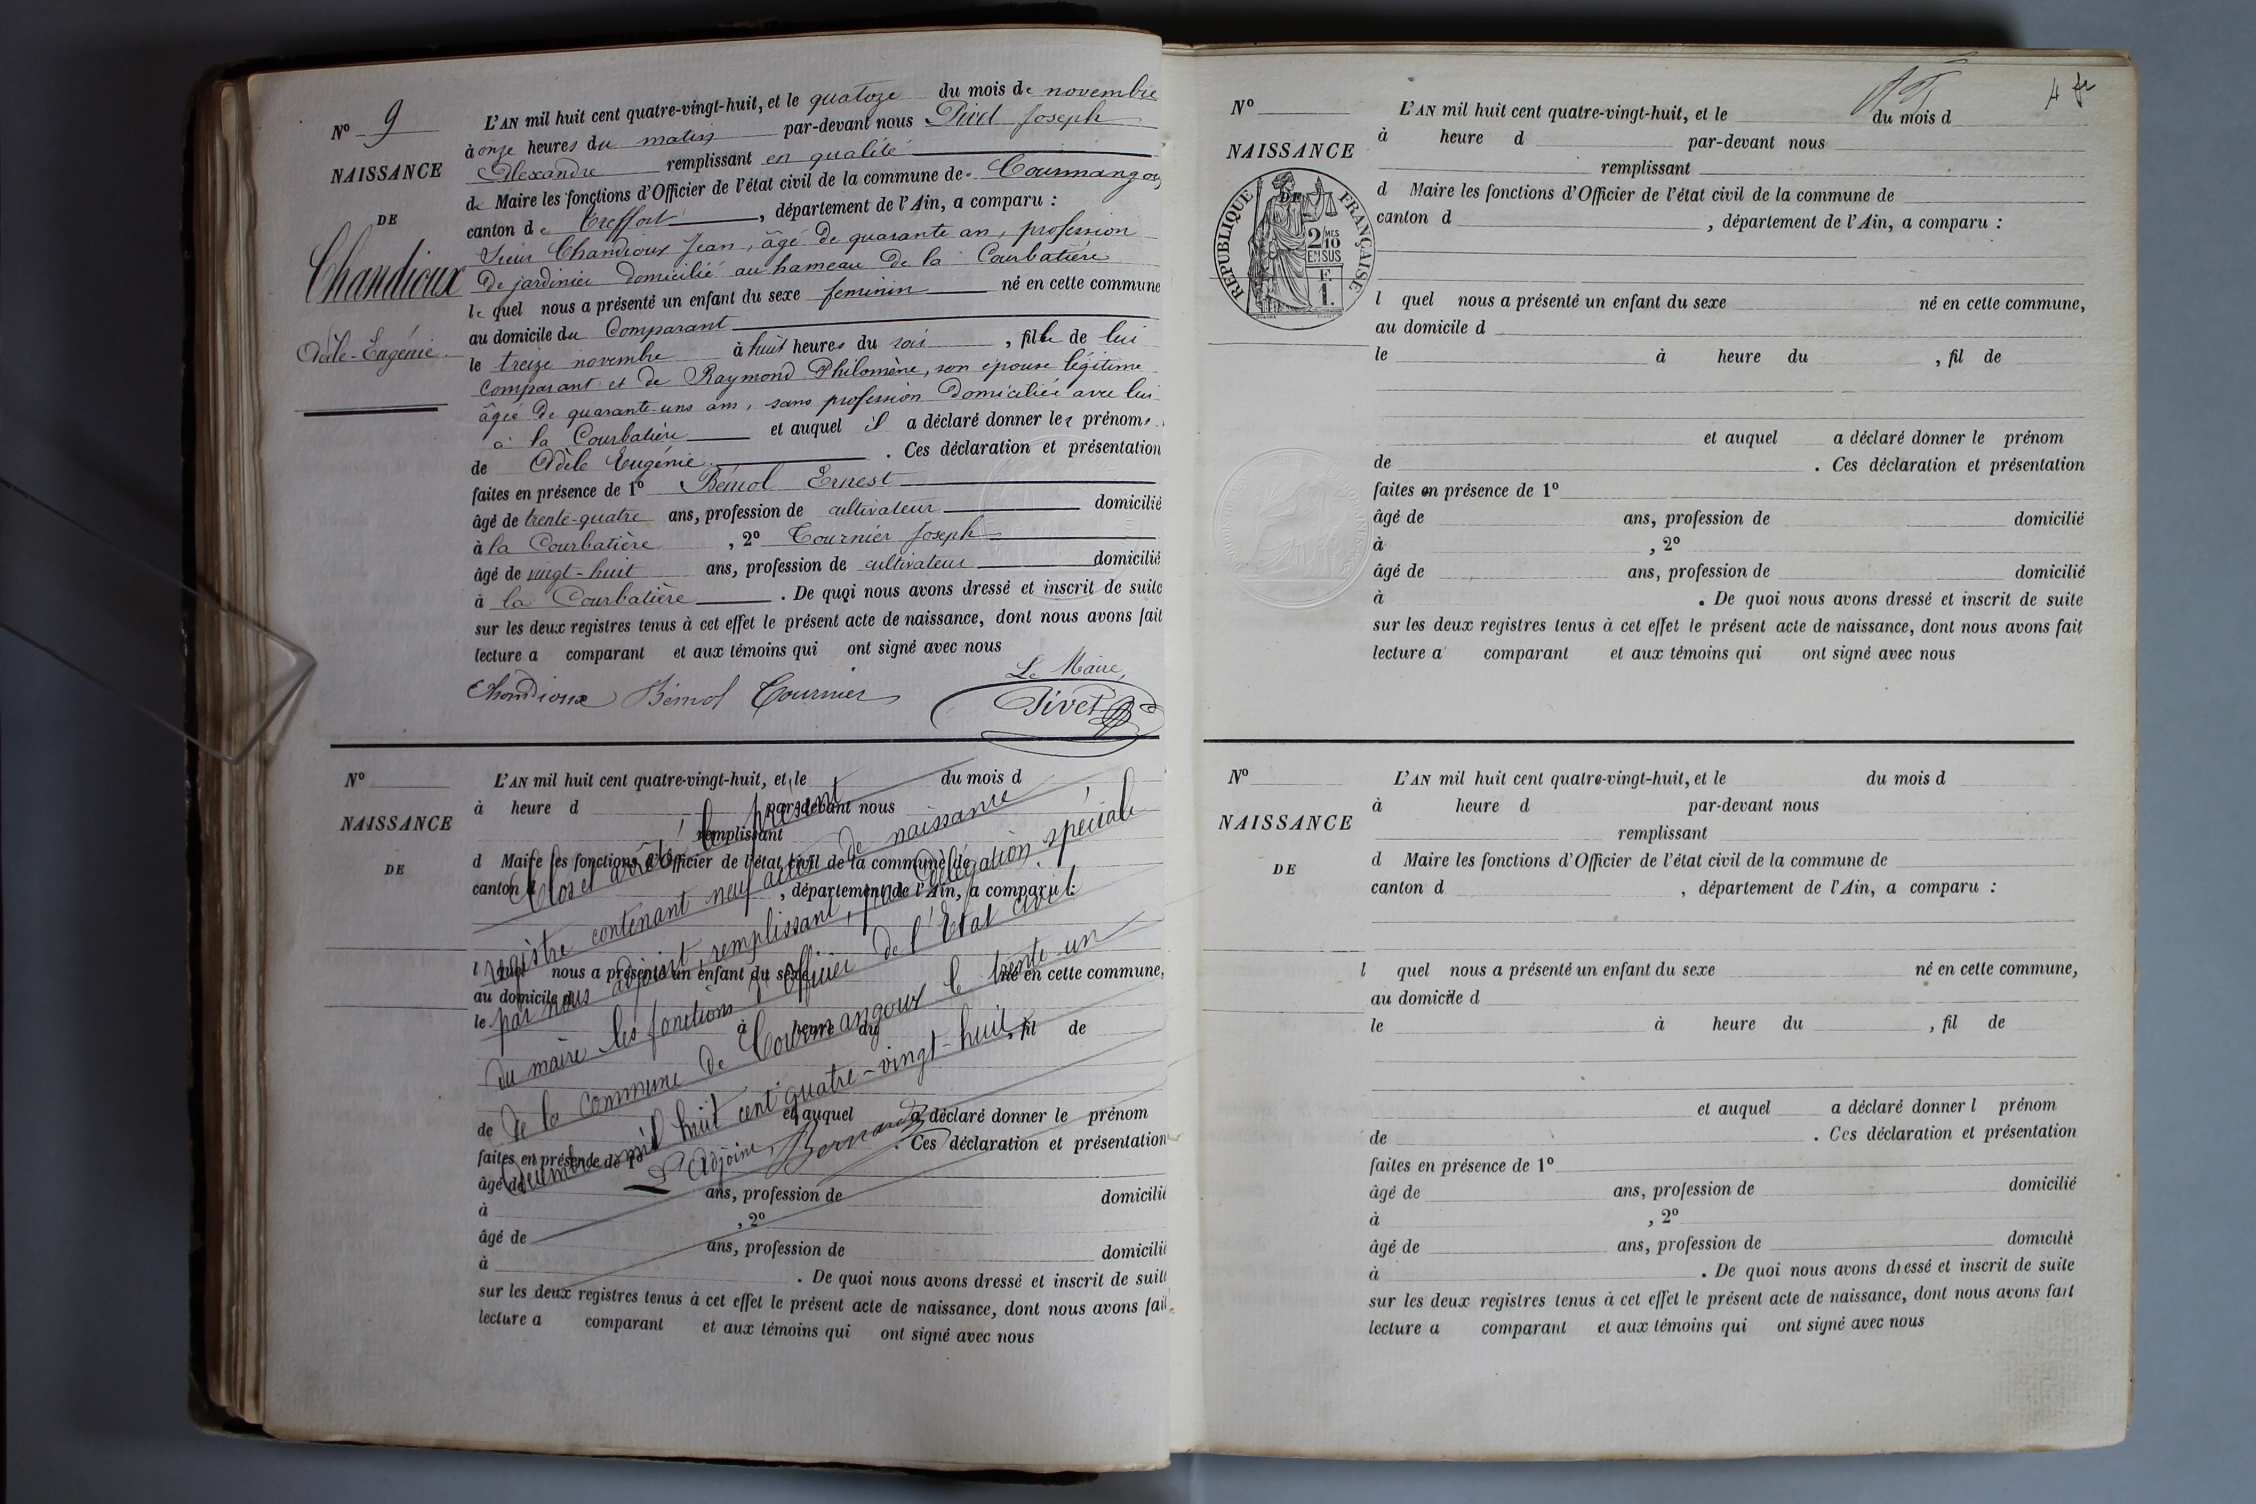 N° 9
NAISSANCE
DE
Chandioux
Adèle-Eugénie
L'AN mil huit cent quatre-vingt-huit, et le quatoze du mois de novembre
à onze heures du matin par-devant nous Pivet Joseph
Alexandre remplissant en qualité
de Maire les fonctions d'Officier de l'état civil de la commune de Courmangoux
canton de Treffort, département de l'Ain, a comparu :
Sieur Chandioux Jean, âgé de quarante an, profession
de jardinier domicilié au hameau de la Courbatière
le quel nous a présenté un enfant du sexe feminin né en cette commune
au domicile du Comparant
le treize novembre à huit heures du soir, fille de lui
comparant et de Raymond Philomène, son épouse légitime
âgée de quarante-uns ans, sans profession domiciliée avec lui
à la Courbatière et auquel il a déclaré donner les prénoms
de Adèle Eugénie. Ces déclaration et présentation
faites en présence de 1° Bémol Ernest
âgé de trente-quatre ans, profession de cultivateur domicilié
à la Courbatière, 2° Tournier Joseph
âgé de vingt-huit ans, profession de cultivateur domicilié
à la Courbatière. De quoi nous avons dressé et inscrit de suite
sur les deux registres tenus à cet effet le présent acte de naissance, dont nous avons fait
lecture a comparant et aux témoins qui ont signé avec nous
Le Maire,
Chandioux Bémol Tournier Pivet
N°
NAISSANCE
DE
L'AN mil huit cent quatre-vingt-huit, et le du mois d
à heure d par-devant nous
remplissant
d Maire les fonctions d'Officier de l'état civil de la commune de
canton d, département de l'Ain, a comparu :
l quel nous a présenté un enfant du sexe né en cette commune,
au domicile d
le à heure du, fil de
et auquel a déclaré donner le prénom
de. Ces déclaration et présentation
faites en présence de 1°
âgé de ans, profession de domicilié
à, 2°
âgé de ans, profession de domicilié
à. De quoi nous avons dressé et inscrit de suite
sur les deux registres tenus à cet effet le présent acte de naissance, dont nous avons fait
lecture a comparant et aux témoins qui ont signé avec nous
Clos et arrêté le présent
registre contenant neuf actes de naissance
par nous adjoint, remplissant, par délégation spéciale
du maire les fonctions d'officier de l'Etat civil
de la commune de Courmangoux le trente-un
décembre mil huit cent quatre-vingt-huit
L'Adjoint, Bernard
4 fr
N°
NAISSANCE
DE
REPUBLIQUE FRANÇAISE
2 MES
10
EN SUS
F.
1.
L'AN mil huit cent quatre-vingt-huit, et le du mois d
à heure d par-devant nous
remplissant
d Maire les fonctions d'Officier de l'état civil de la commune de
canton d, département de l'Ain, a comparu :
l quel nous a présenté un enfant du sexe né en cette commune,
au domicile d
le à heure du, fil de
et auquel a déclaré donner le prénom
de. Ces déclaration et présentation
faites en présence de 1°
âgé de ans, profession de domicilié
à, 2°
âgé de ans, profession de domicilié
à. De quoi nous avons dressé et inscrit de suite
sur les deux registres tenus à cet effet le présent acte de naissance, dont nous avons fait
lecture a comparant et aux témoins qui ont signé avec nous
N°
NAISSANCE
DE
L'AN mil huit cent quatre-vingt-huit, et le du mois d
à heure d par-devant nous
remplissant
d Maire les fonctions d'Officier de l'état civil de la commune de
canton d, département de l'Ain, a comparu :
l quel nous a présenté un enfant du sexe né en cette commune,
au domicile d
le à heure du, fil de
et auquel a déclaré donner l prénom
de. Ces déclaration et présentation
faites en présence de 1°
âgé de ans, profession de domicilié
à, 2°
âgé de ans, profession de domicilié
à. De quoi nous avons dressé et inscrit de suite
sur les deux registres tenus à cet effet le présent acte de naissance, dont nous avons fait
lecture a comparant et aux témoins qui ont signé avec nous